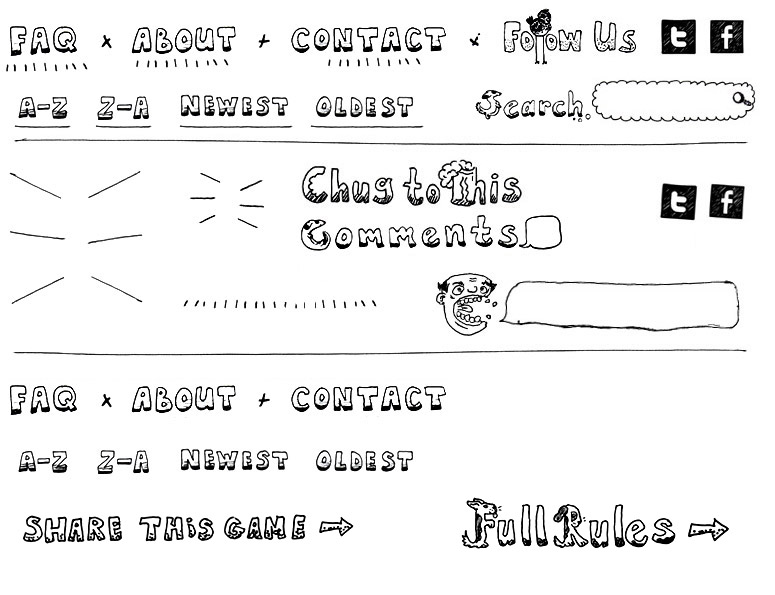 FAQ x ABOUT + CONTACT x Follow Us t f
A-Z Z-A NEWEST OLDEST Search.
Chug to This t f
Comments
FAQ x ABOUT + CONTACT
A-Z Z-A NEWEST OLDEST
SHARE THiS GAME Full Rules